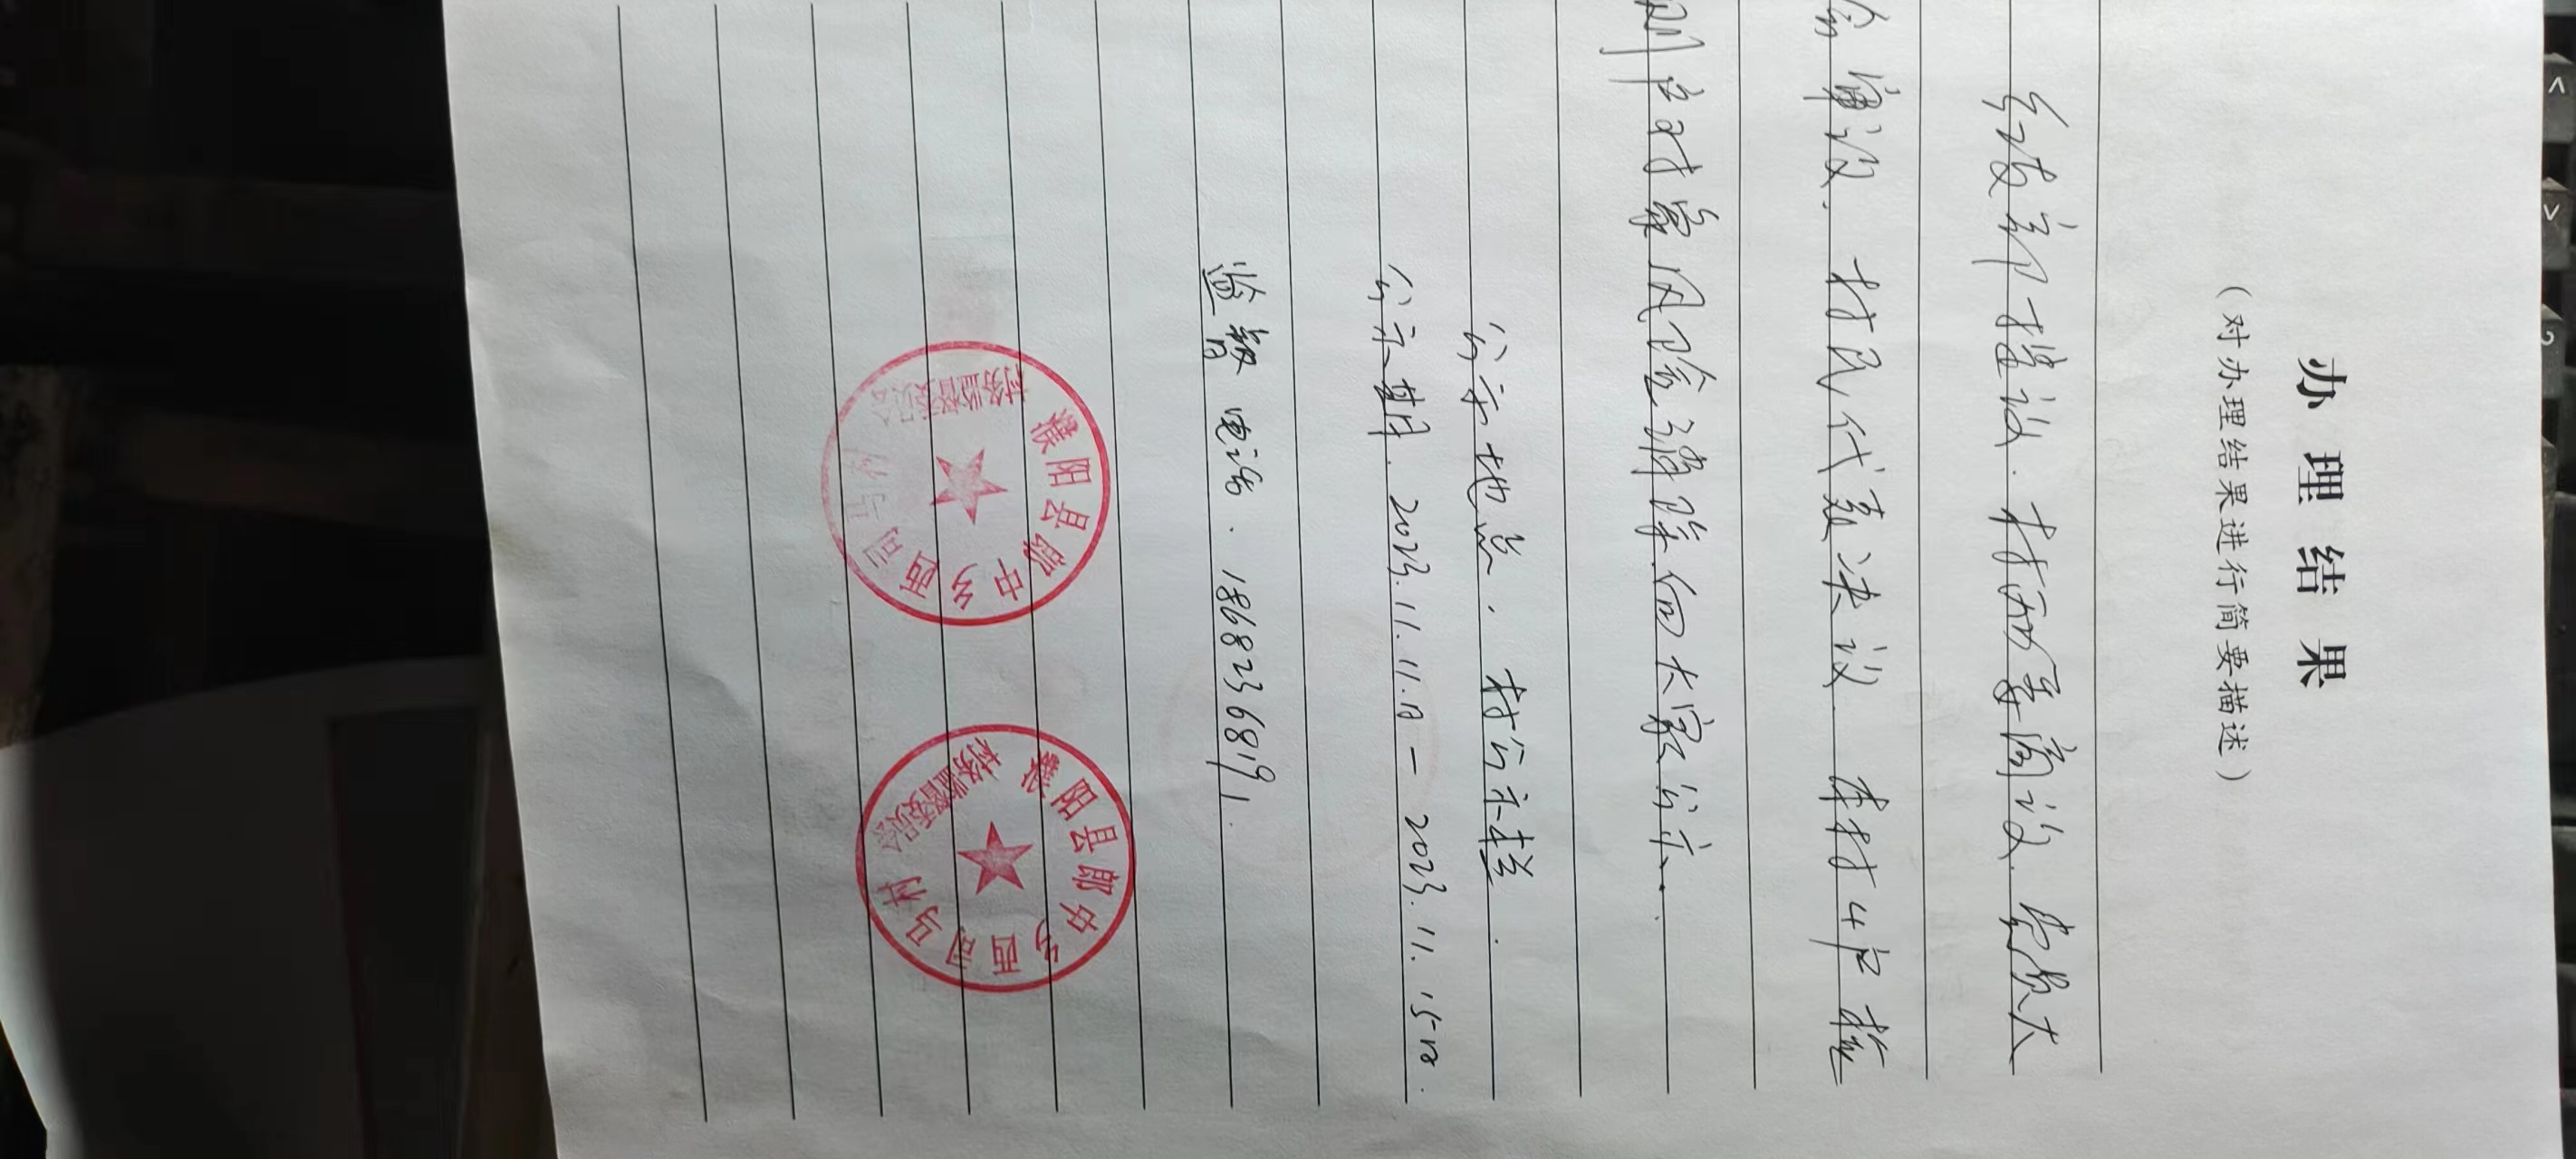 < > ?
办理结果
（对办理结果进行简要描述）
经支部提议.村两委商议.党员大
会审议.村民代表决议.本村4户检
测户对象风险消除.向大家公示.
公示地点.村公示栏.
公示期.2023.11.11.日—2023.11.15日.
监督电话.18682368191.
濮阳县郎中乡西司马村
村务监督委员会
濮阳县郎中乡西司马村
村务监督委员会